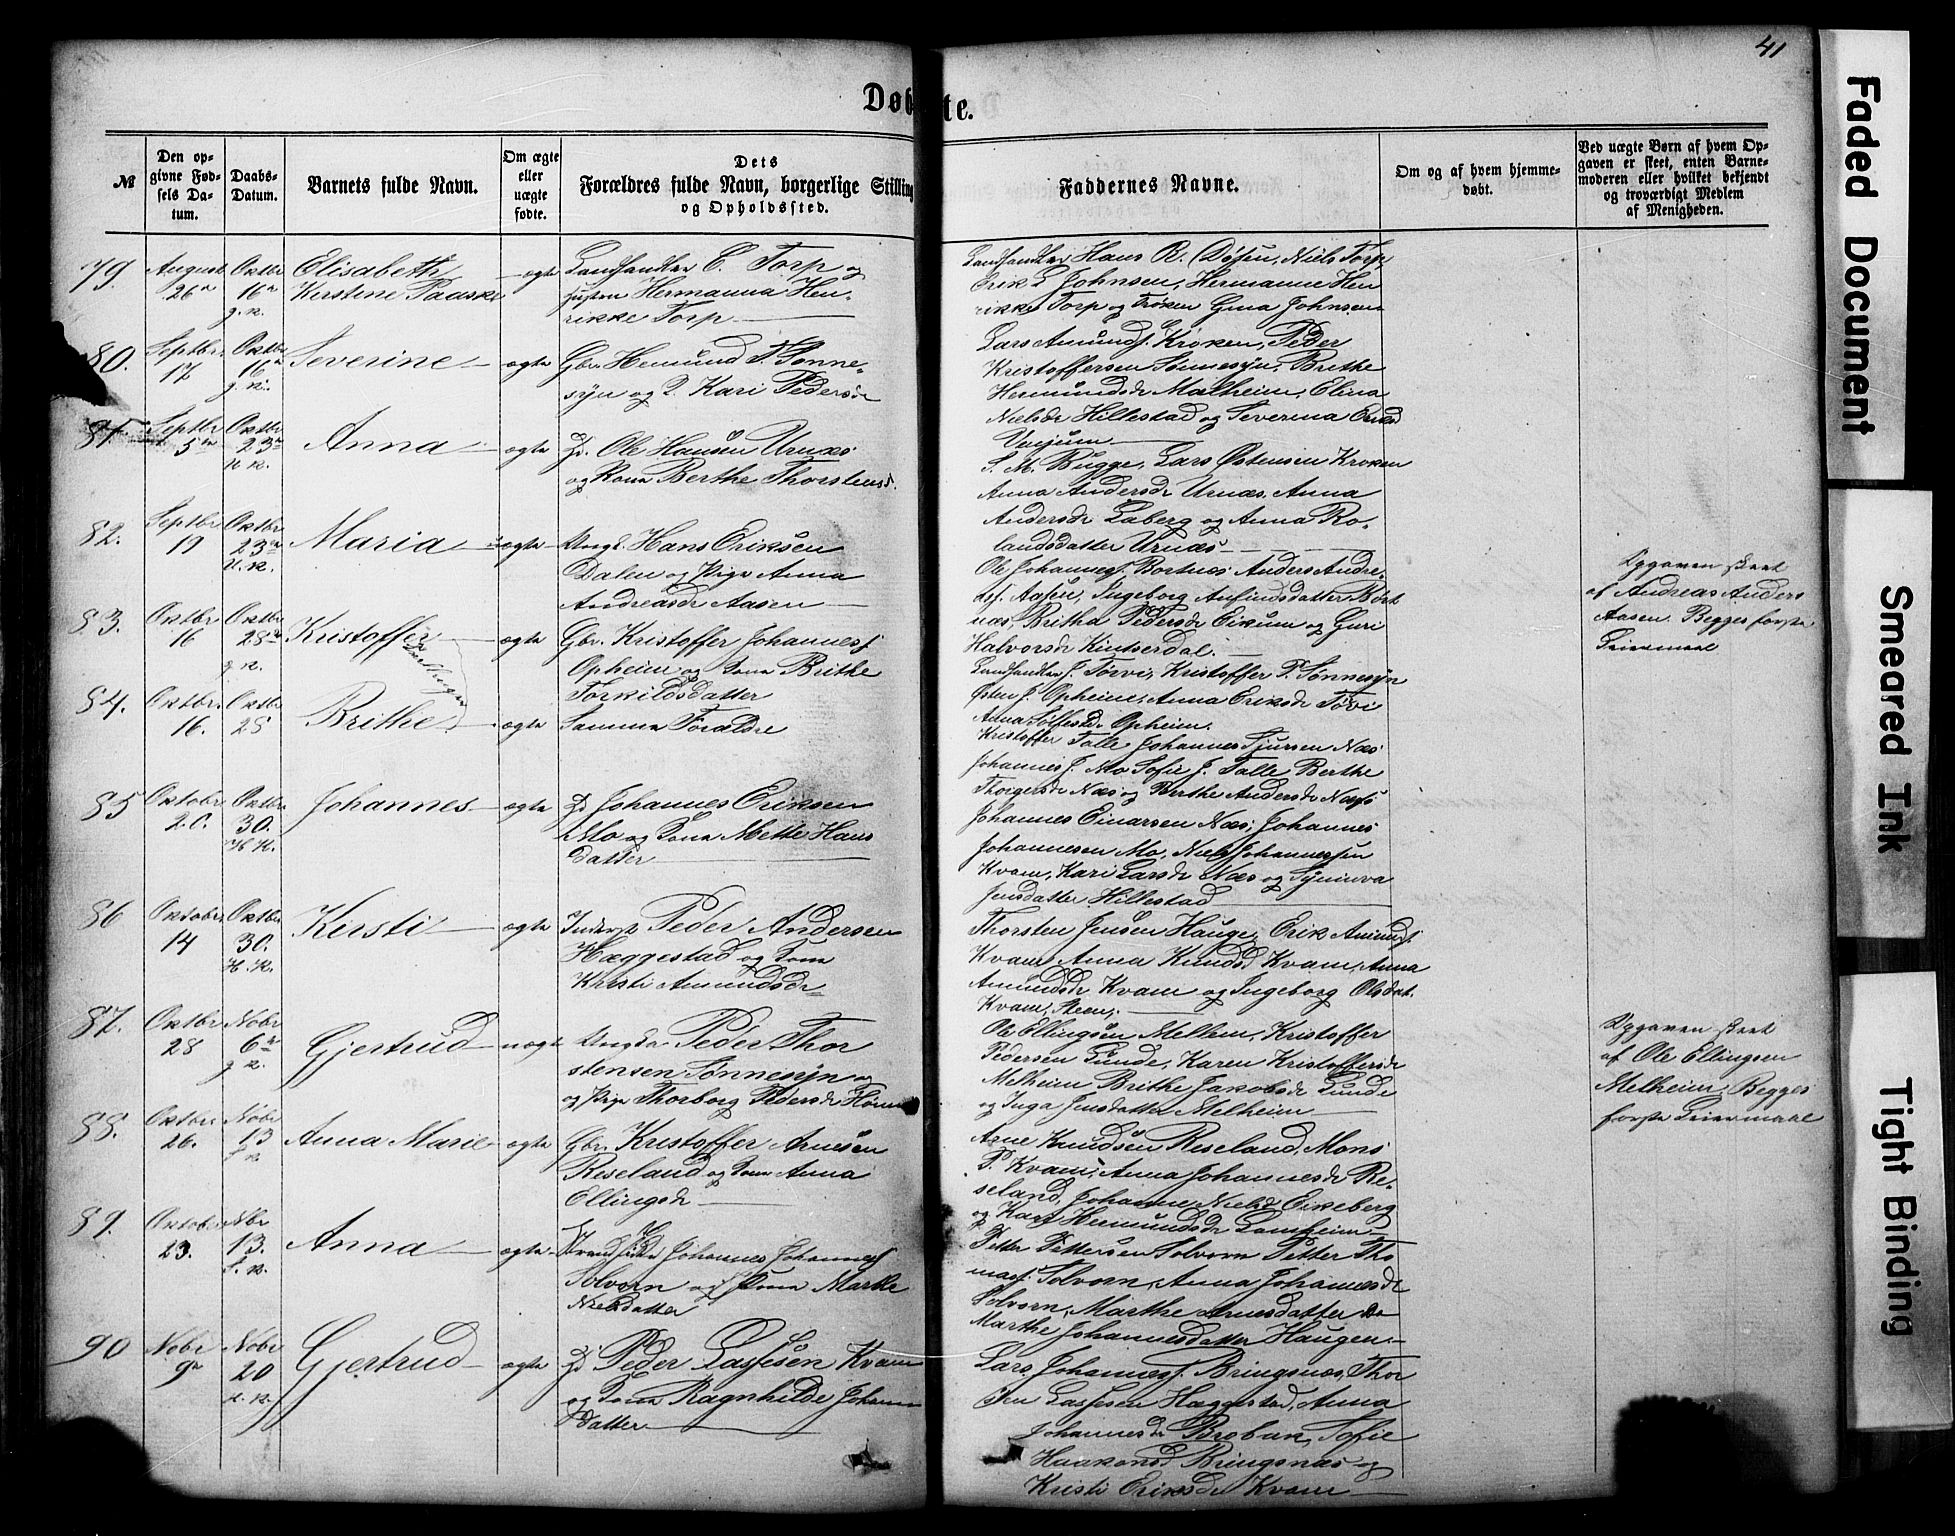 41
Døbte.
№
Den opgivne Fødsels Datum.
Daabs-Datum.
Barnets fulde Navn.
Om ægte eller uægte fødte.
Dets Forældres fulde Navn, borgerlige Stilling og Opholdssted.
Faddernes Navne.
Om og af hvem hjemmedøbt.
Ved uægte Børn af hvem Opgaven er skeet, enten Barnemoderen eller hvilket bekjendt og troværdigt Medlem af Menigheden.
79. August 26 Oktbr 16 Elisabeth Kirstine Paaske ægte
Landhandler C. Torp og
Hustru Hermanna Hen-
rikke Torp
Landhandler Hans R. Døsen, Niels Torp,
Erik L Johnsen, Hermanne Hen
rikke Torp og Frøken Gina Johnsen
80. Septbr 17 Oktbr 16 Severine ægte
Gbr. Hemund T. Sønne-
syn og Q. Kari Pedersdr
Lars Amunds. Kroken, Peder
Kristoffersen Sønnesyn, Brithe
Hermundsdr Malheim, Elina
Nielsdr Hillestad og Severina
81. Septbr 5 Oktbr 23 Anna ægte
Ole Hansen Urnæs
og Kona Berthe Thorstensd.
S. M. Bugge, Lars Østensen Kroken
Anna Andersdr Urnæs, Anna
Andersdr Laberg og Anna Ro-
landsdatter Urnæs
82. Septbr 19 Oktbr 23 Maria uægte
Ungk. Hans Eriksen
Dalen og Pige Anna
Andreasdr Aasen
Ole Johanness. Bortnæs Anders Andre-
as. Aasen, Ingeborg Anfindsdatter Bort
næs, Britha Pedersdr Eikum og Guri
Halvorsdr Kintserdal.
Opgaven skeet
af Andreas Anders
Aasen. Begges første
Leiermaal
83. Oktbr 16 Oktbr 28 Kristoffer ægte
Tvillinger
Gbr. Kristoffer Johanness
Opheim og Kona Brithe
Torkildsdatter
Landhandler J. Tørvi, Kristoffer P. Sønnesyn
Østen J. Opheim, Anna Eriksdr Tørvi
Anna Sølfestdr Opheim.
84. Oktbr. 16. Oktbr 28 Brithe ægte
Samma Forældre
Kristoffer Talle Johannes Sjursen Næs
Johannes J. Mo Sofie J. Talle Berthe
Thorgersdr Næs og Berthe Andersdr Næss
85 Oktobr 20. Oktbr 30. H.K. Johannes ægte
Johannes Eriksen
Mo og Kona Mette Hans
datter
Johannes Einarsen Næs, Johannes
Johannesen Mo, Niels Johannessen
Kvam, Kari Larsdr Næs og Synneva
Jensdatter Hillestad
86 Oktober 14 Oktbr 30. H.K. Kirsti ægte
Peder Andersen
Hæggestad og Kona
Kristi Amundsdr
Thorsten Jensen Hauge, Erik Amunds.
Kvam Anna Knudsd Kvam, Anna
Amundsdr Kvam og Ingeborg Olsdat.
Kvam,
87. Oktbr 28 Nobr 6 Gjertrud uægte
Ungkr Peder Thor
stensen Sønnesyn og
og Pige Thorborg Pedersdr
Ole Ellingsen Melheim, Kristoffer
Pedersen Lunde, Karen Kristoffersdr
Melheim Brithe Jakobsdr Lunde
og Inga Jensdatter Melheim
Opgaven skeet
af Ole Ellingsen
Melheim, Begges
første Leiermaal
88. Oktbr 26. Nobr 13 Anna Marie ægte
Gbr. Kristoffer Arnesen
Reseland og Kona Anna
Ellingsdr
Arne Knudsen Reseland, Mons
P. Kvam, Anna Johannesdr Re-
seland, Johanne Nielsd Eikeberg
og Kari Hermundsdr Lomheim
89. Oktober 23. Nbr 13. Anna ægte
Johannes Johanness
Solvorn og Kona Marthe
Nielsdatter
Petter Pettersen Solvorn Petter Tho
mass. Solvorn, Anna Johannesdr
Solvorn, Marthe Arnesdatter do
Marthe Johannesdatter Haugen
90 Nobr 9 Nobr 20 Gjertrud ægte
Peder Lassesen Kvam
og Kona Ragnhilde Johann
datter
Lars Johanness. Bringsnæs, Thor
sten Lassesen Hæggestad, Anna
Johannesdr Broban, Sofie
Haakonsd Bringsnæs og
Kristi Eriksdr Kvam
Faded Document
Smeared Ink
Tight Binding